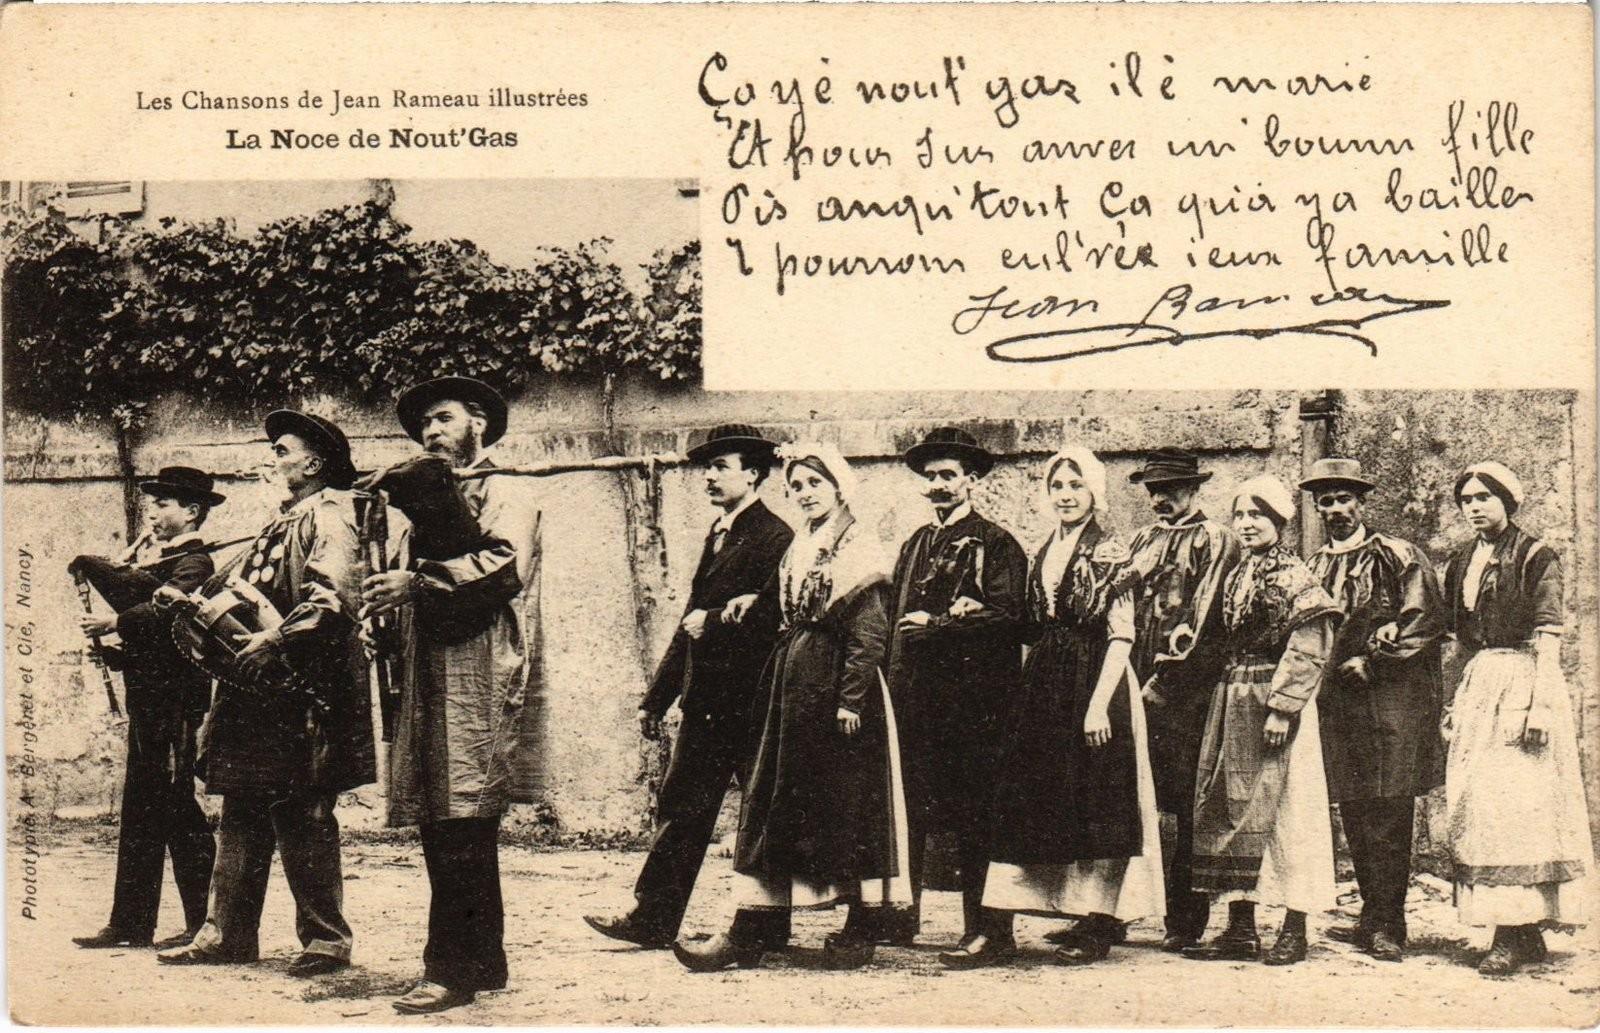 Les Chansons de Jean Rameau illustrées
La Noce de Nout'Gas
Ça yé nout' gas il é marié
Et pour sur anvec un' bounn fille
Pis anqu'tout ça qui a ya bailler
I pourron eul'vée ieux famille
Jean Rameau
Phototypie A. Bergeret et Cie, Nancy.